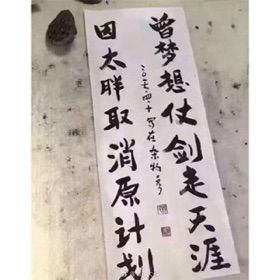 曾梦想仗剑走天涯
因太胖取消原计划
二〇一七.四.十 写在